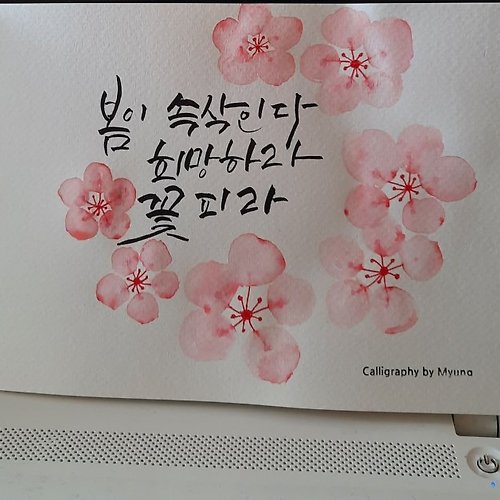 봄이 속삭인다
희망하라
꽃피라
Calligraphy by Myung